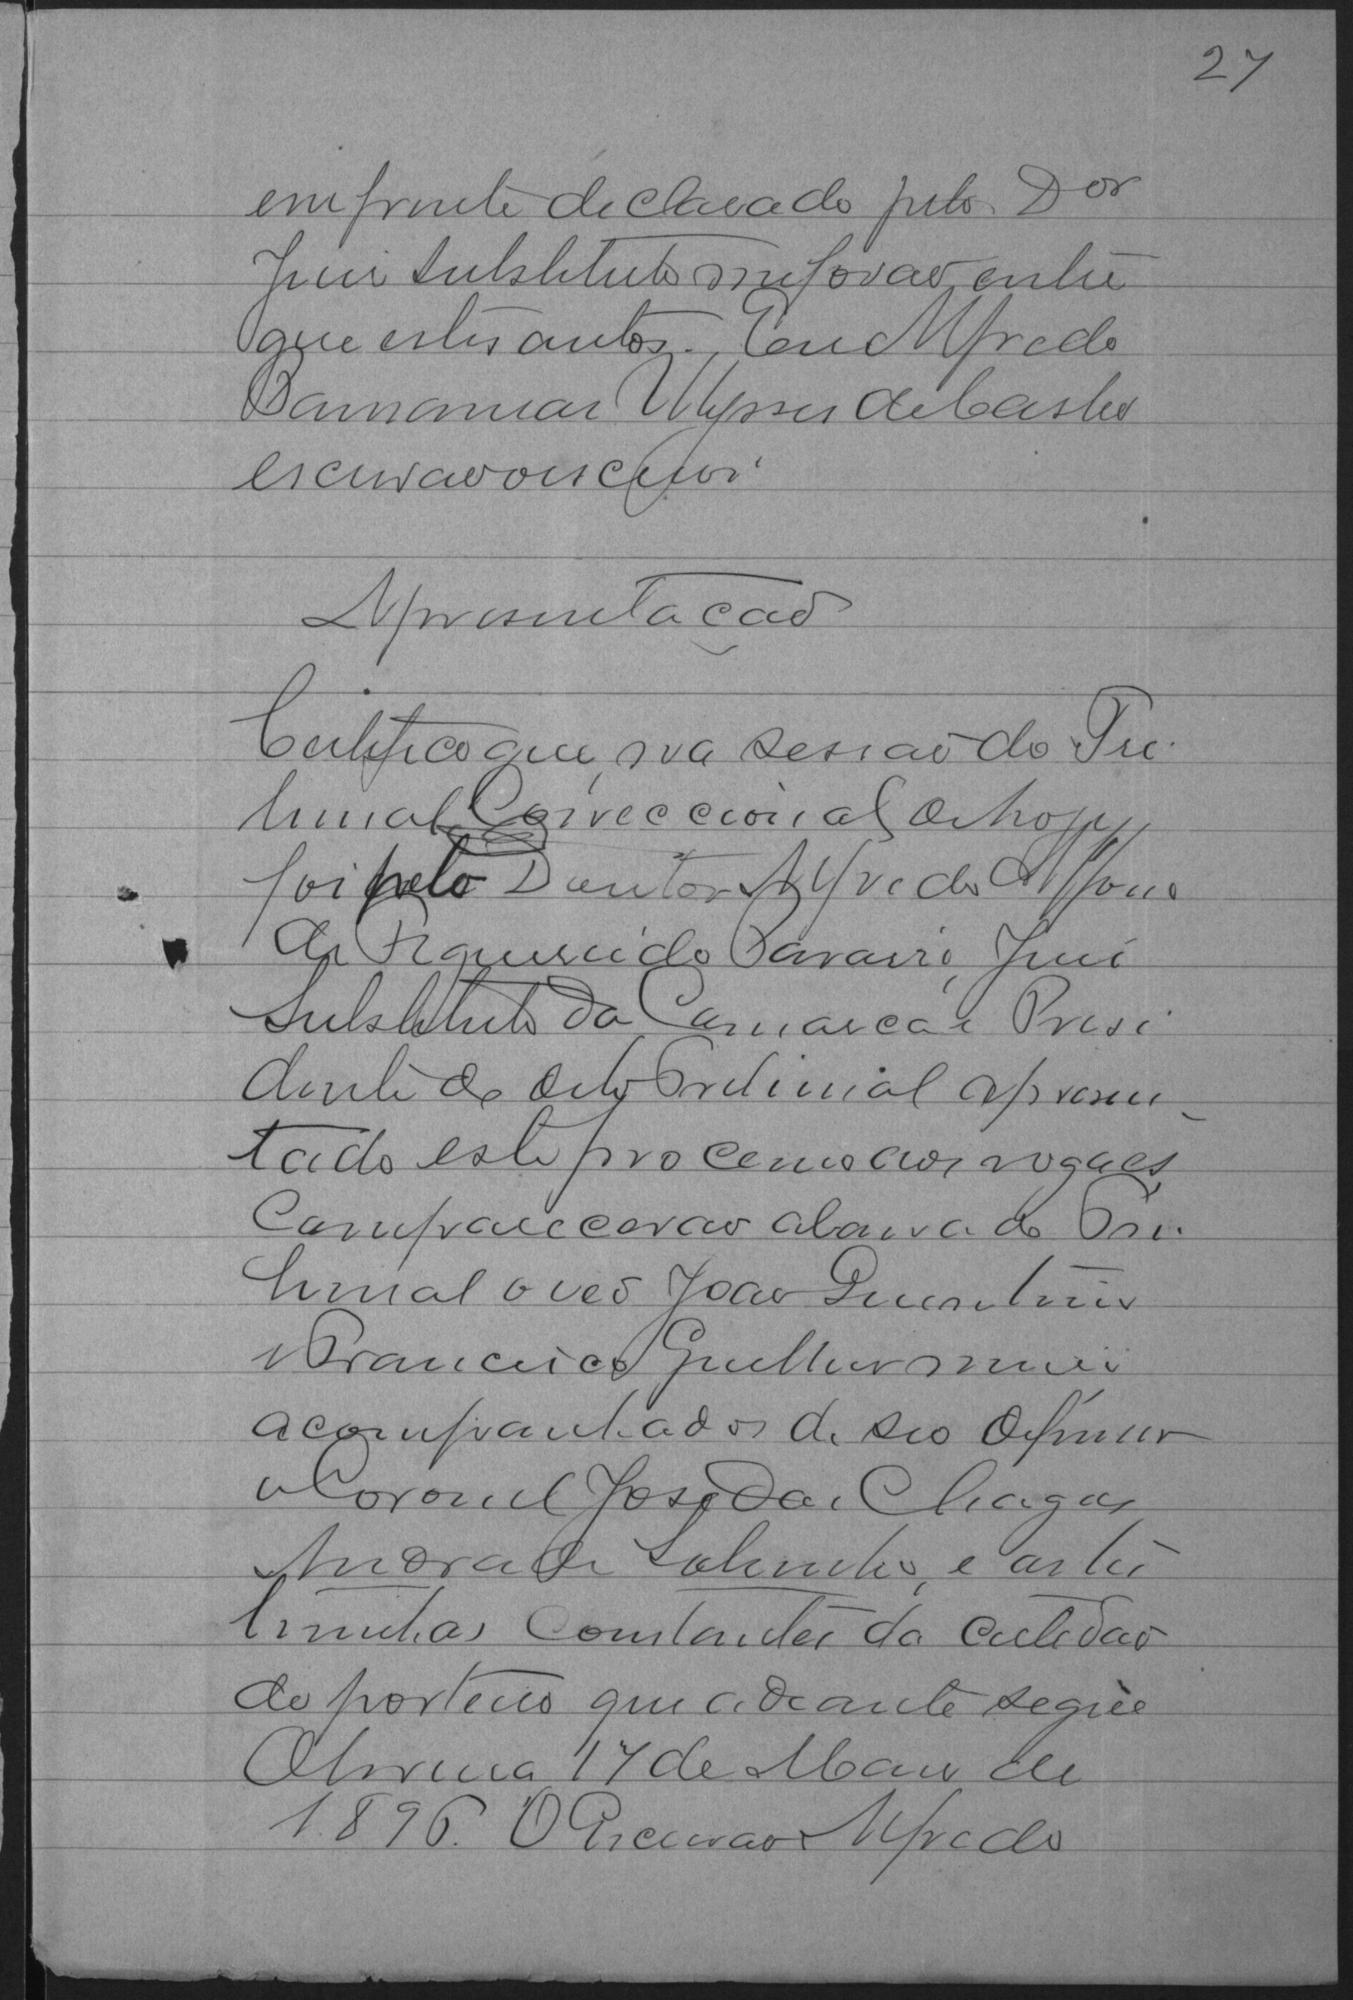 27
em frente declarado pelo Dor
Juiz substituto me forão entre
gue estes autos. Eu Alfredo
Ulysses de Castro
escrivão escrevi.
Apresentação
Certifico que, na sessão do Tri
bunal Correccional de hoje
foi pelo Doutor Alfredo Affonso
de Figueiredo Juiz
Substituto da Comarca e Presi
dente do dito Tribunal apresen-
tado este processo aos vogaes,
Comparecerão a barra do Tri
bunal o reo João Quintino
e Francisco Guilhermino
acompanhados de seo defensor
o Coronel José das Chagas
Andrade Sobrinho, e as tes
timunhas constantes da certidão
do porteiro que adeante segue
17 de Maio de
1896. O Escrivão Alfredo